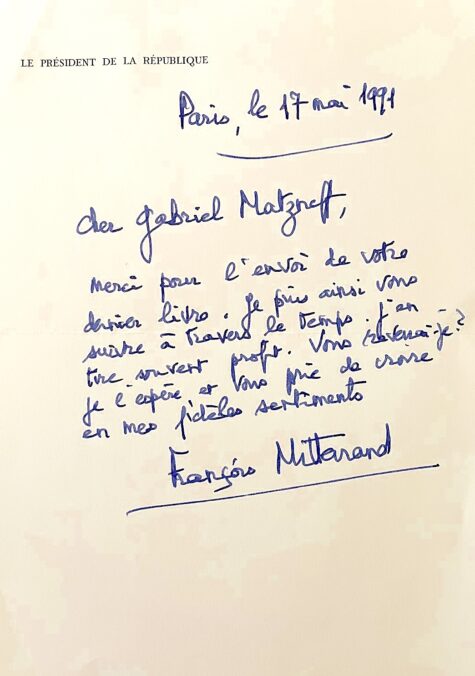 LE PRÉSIDENT DE LA RÉPUBLIQUE
Paris, le 17 mai 1991
cher Gabriel Matzneff,
merci pour l'envoi de votre
dernier livre. Je puis ainsi vous
suivre à travers le temps. J'en
tire souvent profit. Vous reverrai-je?
Je l'espère et vous prie de croire
en mes fidèles sentiments
François Mitterrand